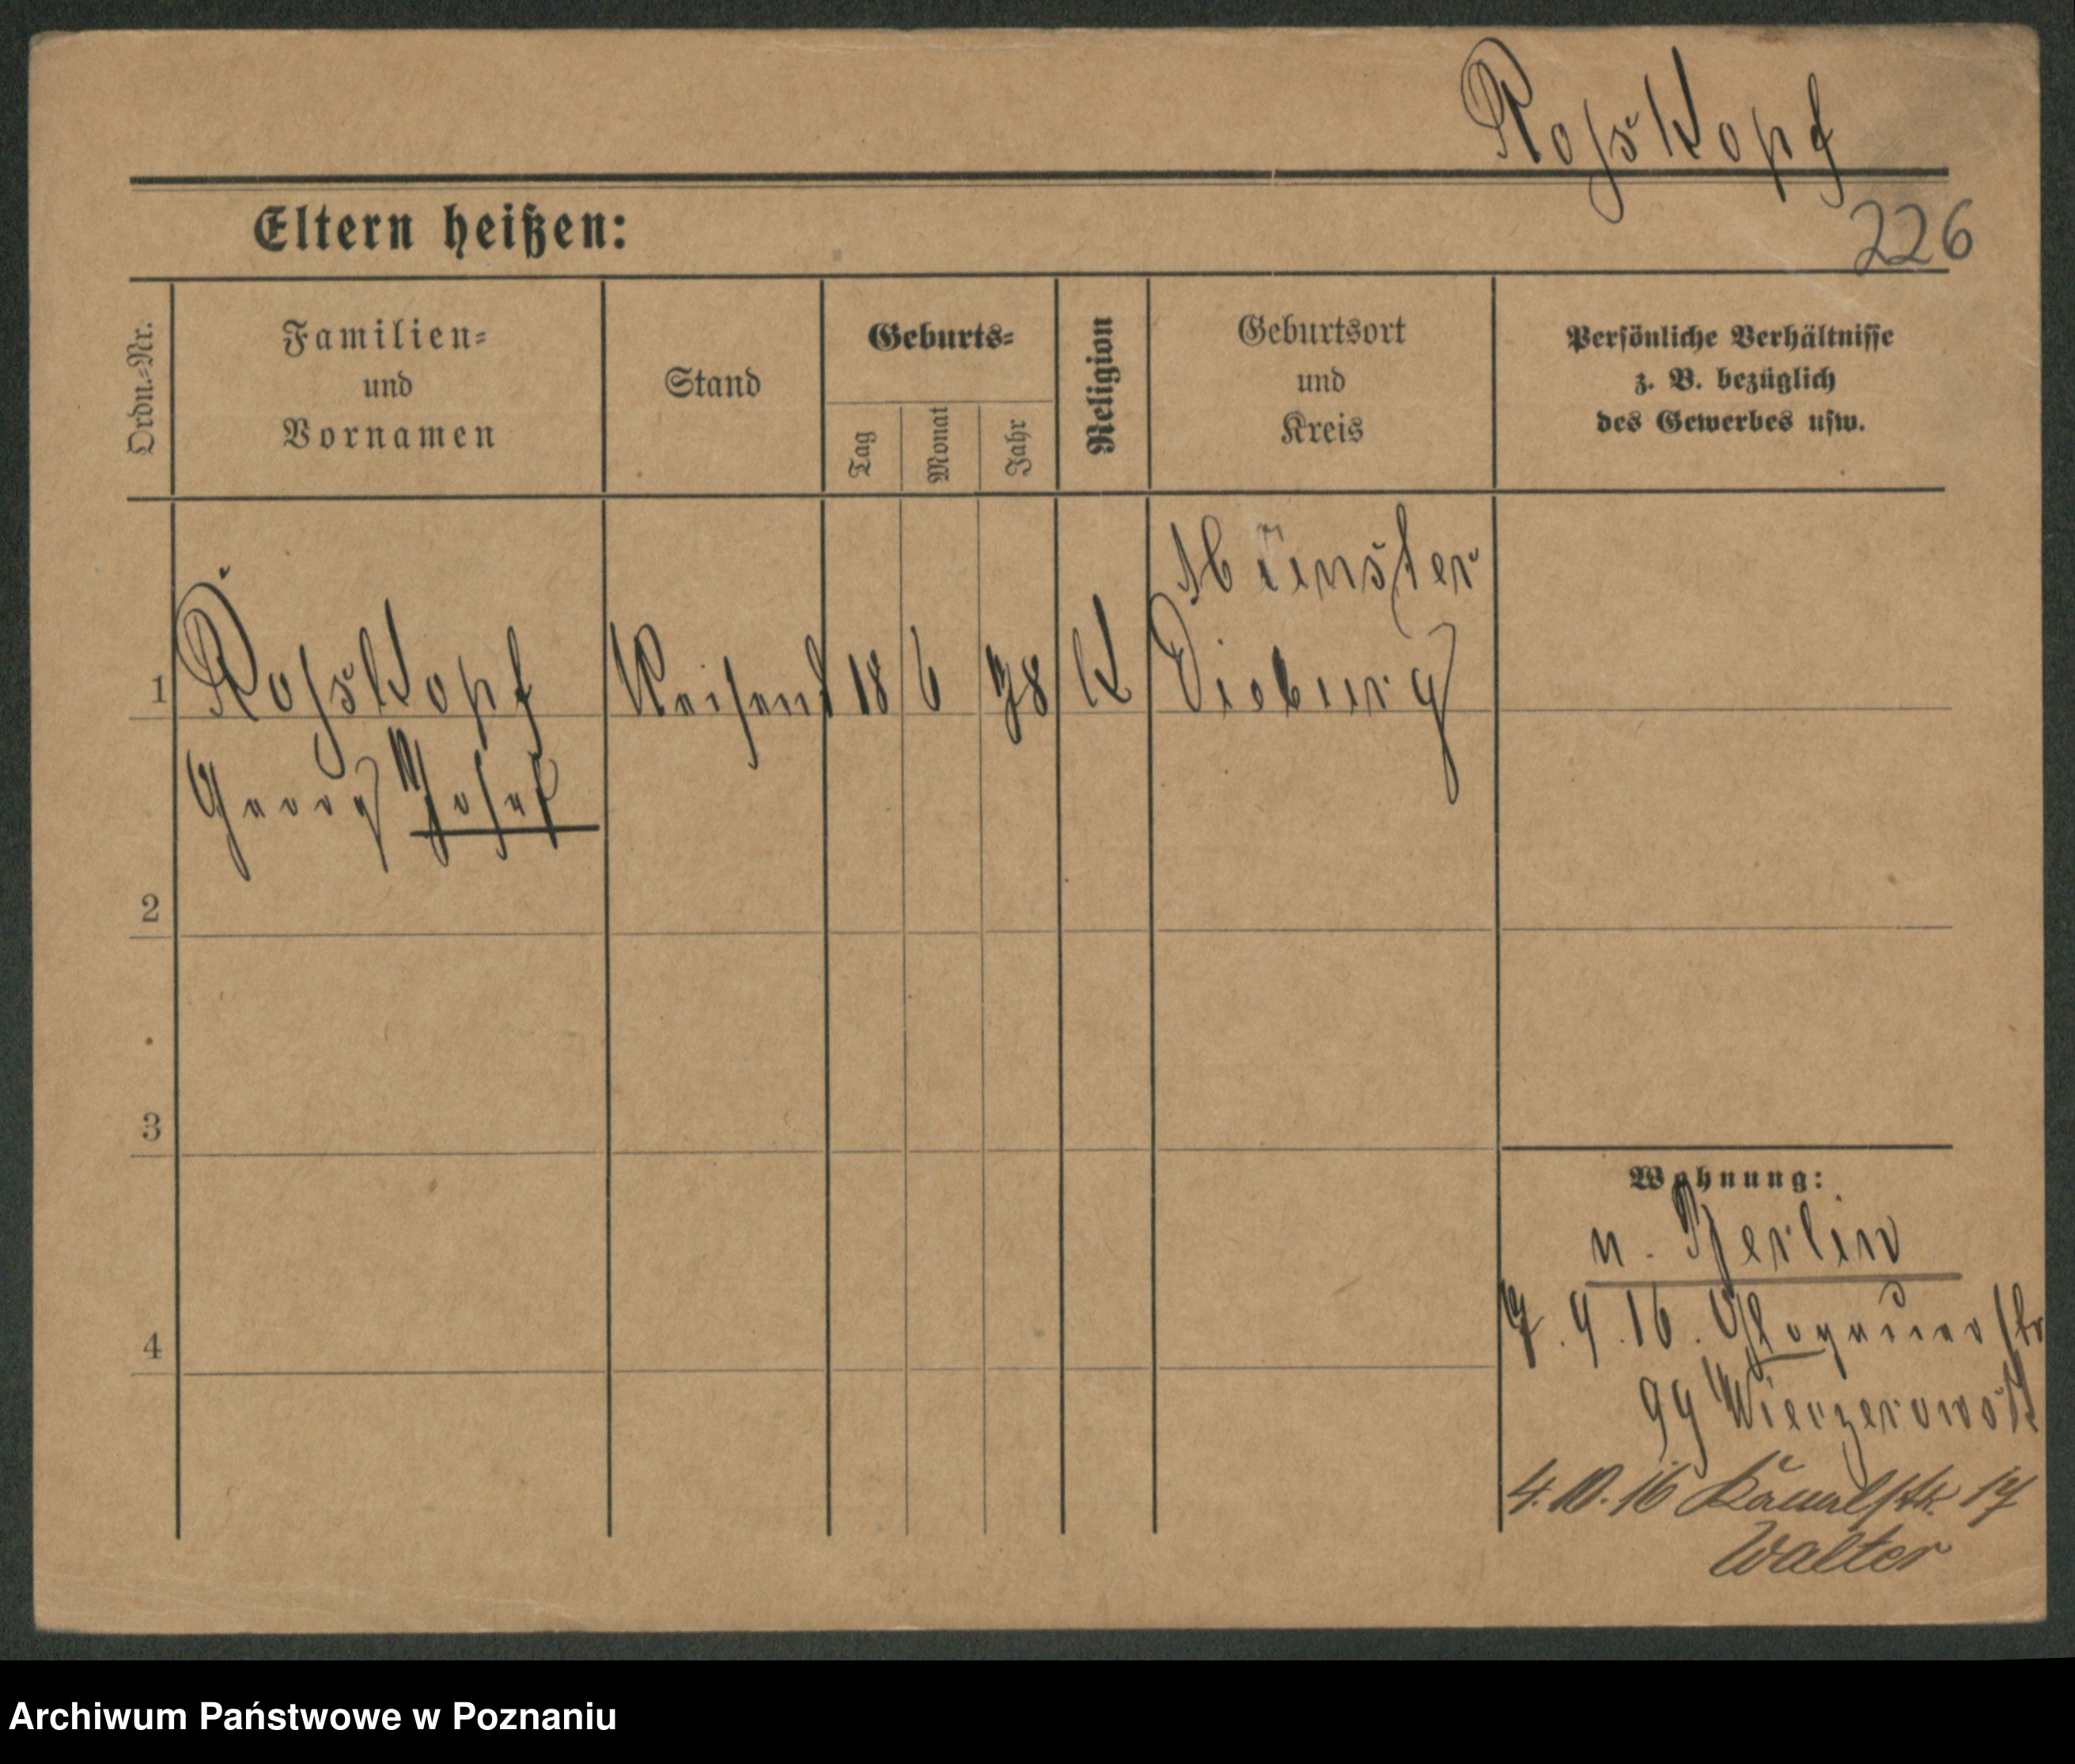 Rosskopf
Eltern heißen:
226
Ordn.=Nr.
Familien=
und
Vornamen
Stand
Geburts=
Tag
Monat
Jahr
Religion
Geburtsort
und
Kreis
Persönliche Verhältnisse
z. B. bezüglich
des Gewerbes usw.
1
Rosskopf
Georg Josef
Reisend
18
6
78
K
Münster
Dieburg
2
3
4
Wohnung:
n. Berlin
7. 9. 16. Glogauerstr
99
4. 10. 16 Kanalstr. 17
Walter
Archiwum Państwowe w Poznaniu